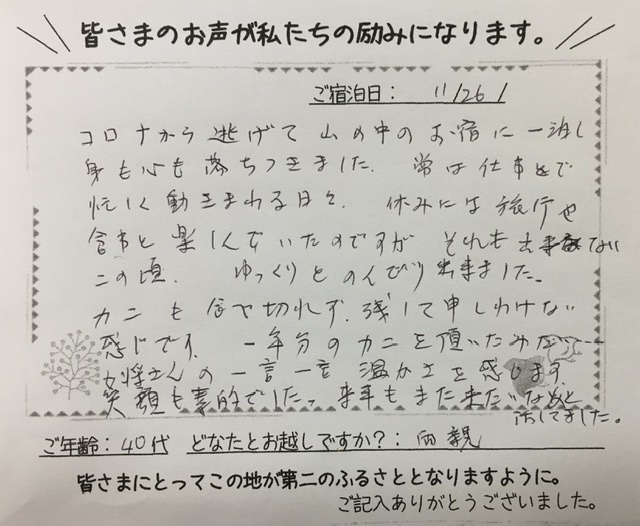 皆さまのお声が私たちの励みになります。
ご宿泊日： 11/26/
コロナから逃げて山の中のお宿に一泊し
身も心も落ちつきました。常は仕事で
忙しく動きまわる日々。休みには旅行や
食事と楽しんでいたのですがそれも出来ない
この頃。ゆっくりとのんびり出来ました。
カニも食べ切れず、残して申しわけない
感じです。一年分のカニを頂いたみたい
女将さんの一言一言温かさを感じます。
笑顔も素的でした。来年もまた来たいなぁと
話してました。
ご年齢：40代 どなたとお越しですか？：両親
皆さまにとってこの地が第二のふるさととなりますように。
ご記入ありがとうございました。